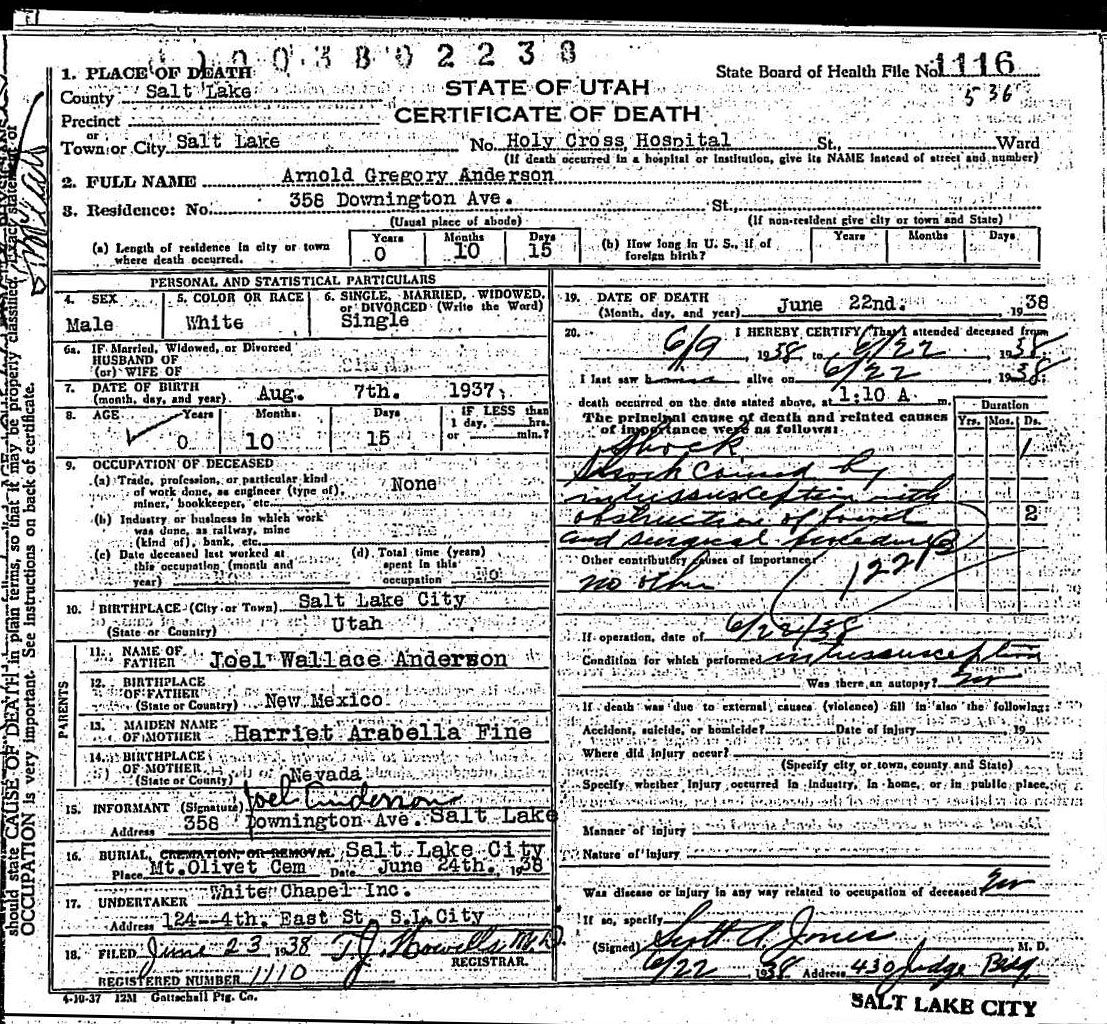 003802238
1. PLACE OF DEATH
State Board of Health File No. 1116
County Salt Lake
STATE OF UTAH
536
Precinct
CERTIFICATE OF DEATH
or
Town or City Salt Lake No. Holy Cross Hospital St., Ward
(If death occurred in a hospital or institution, give its NAME instead of street and number)
2. FULL NAME Arnold Gregory Anderson
3. Residence: No. 358 Downington Ave. St.
(Usual place of abode) (If non-resident give city or town and State)
(a) Length of residence in city or town where death occurred. Years 0 Months 10 Days 15
(b) How long in U. S., if of foreign birth? Years Months Days
PERSONAL AND STATISTICAL PARTICULARS
4. SEX Male
5. COLOR OR RACE White
6. SINGLE, MARRIED, WIDOWED, or DIVORCED (Write the Word) Single
6a. IF Married, Widowed, or Divorced
HUSBAND OF
(or) WIFE OF
7. DATE OF BIRTH
(month, day, and year) Aug. 7th. 1937.
8. AGE Years 0 Months 10 Days 15 IF LESS than 1 day, hrs. or min.?
9. OCCUPATION OF DECEASED
(a) Trade, profession, or particular kind
of work done, as engineer (type of),
miner, bookkeeper, etc. None
(b) Industry or business in which work
was done, as railway, mine
(kind of), bank, etc.
(c) Date deceased last worked at
this occupation (month and
year)
(d) Total time (years)
spent in this
occupation No
10. BIRTHPLACE (City or Town) Salt Lake City
(State or Country) Utah
PARENTS
11. NAME OF FATHER Joel Wallace Anderson
12. BIRTHPLACE OF FATHER (State or Country) New Mexico
13. MAIDEN NAME OF MOTHER Harriet Arabella Fine
14. BIRTHPLACE OF MOTHER (State or County) Nevada
15. INFORMANT (Signature) Joel Anderson
Address 358 Downington Ave. Salt Lake
16. BURIAL, CREMATION, OR REMOVAL Salt Lake City
Place Mt. Olivet Cem Date June 24th. 1938
17. UNDERTAKER White Chapel Inc.
Address 124--4th. East St. S.L.City
18. FILED June 23 1938 T.J. Howells M.D.
REGISTRAR.
REGISTERED NUMBER 1110
4-10-37 12M Gottschall Ptg. Co.
19. DATE OF DEATH
(Month, day, and year) June 22nd. 1938
20. I HEREBY CERTIFY, That I attended deceased from
6/9, 1938 to 6/22, 1938
I last saw h alive on 6/22 1938
death occurred on the date stated above, at 1:10 A. m.
The principal cause of death and related causes
of importance were as follows:
Duration
Yrs. Mos. Ds.
Shock 1
Shock caused by
intussusception with
obstruction of bowel 2
and surgical procedure
Other contributory causes of importance:
no other
122B
If operation, date of 6/22/38
Condition for which performed intussusception
Was there an autopsy? no
If death was due to external causes (violence) fill in also the following:
Accident, suicide, or homicide? Date of injury 19
Where did injury occur?
(Specify city or town, county and State)
Specify whether injury occurred in industry, in home, or in public place.
Manner of injury
Nature of injury
Was disease or injury in any way related to occupation of deceased? no
If so, specify
(Signed) Scott A. Jones M. D.
6/22 1938 Address 430 Judge Bldg
SALT LAKE CITY
should state CAUSE OF DEATH in plain terms, so that it may be properly classified. Exact statement of
OCCUPATION is very important. See instructions on back of certificate.